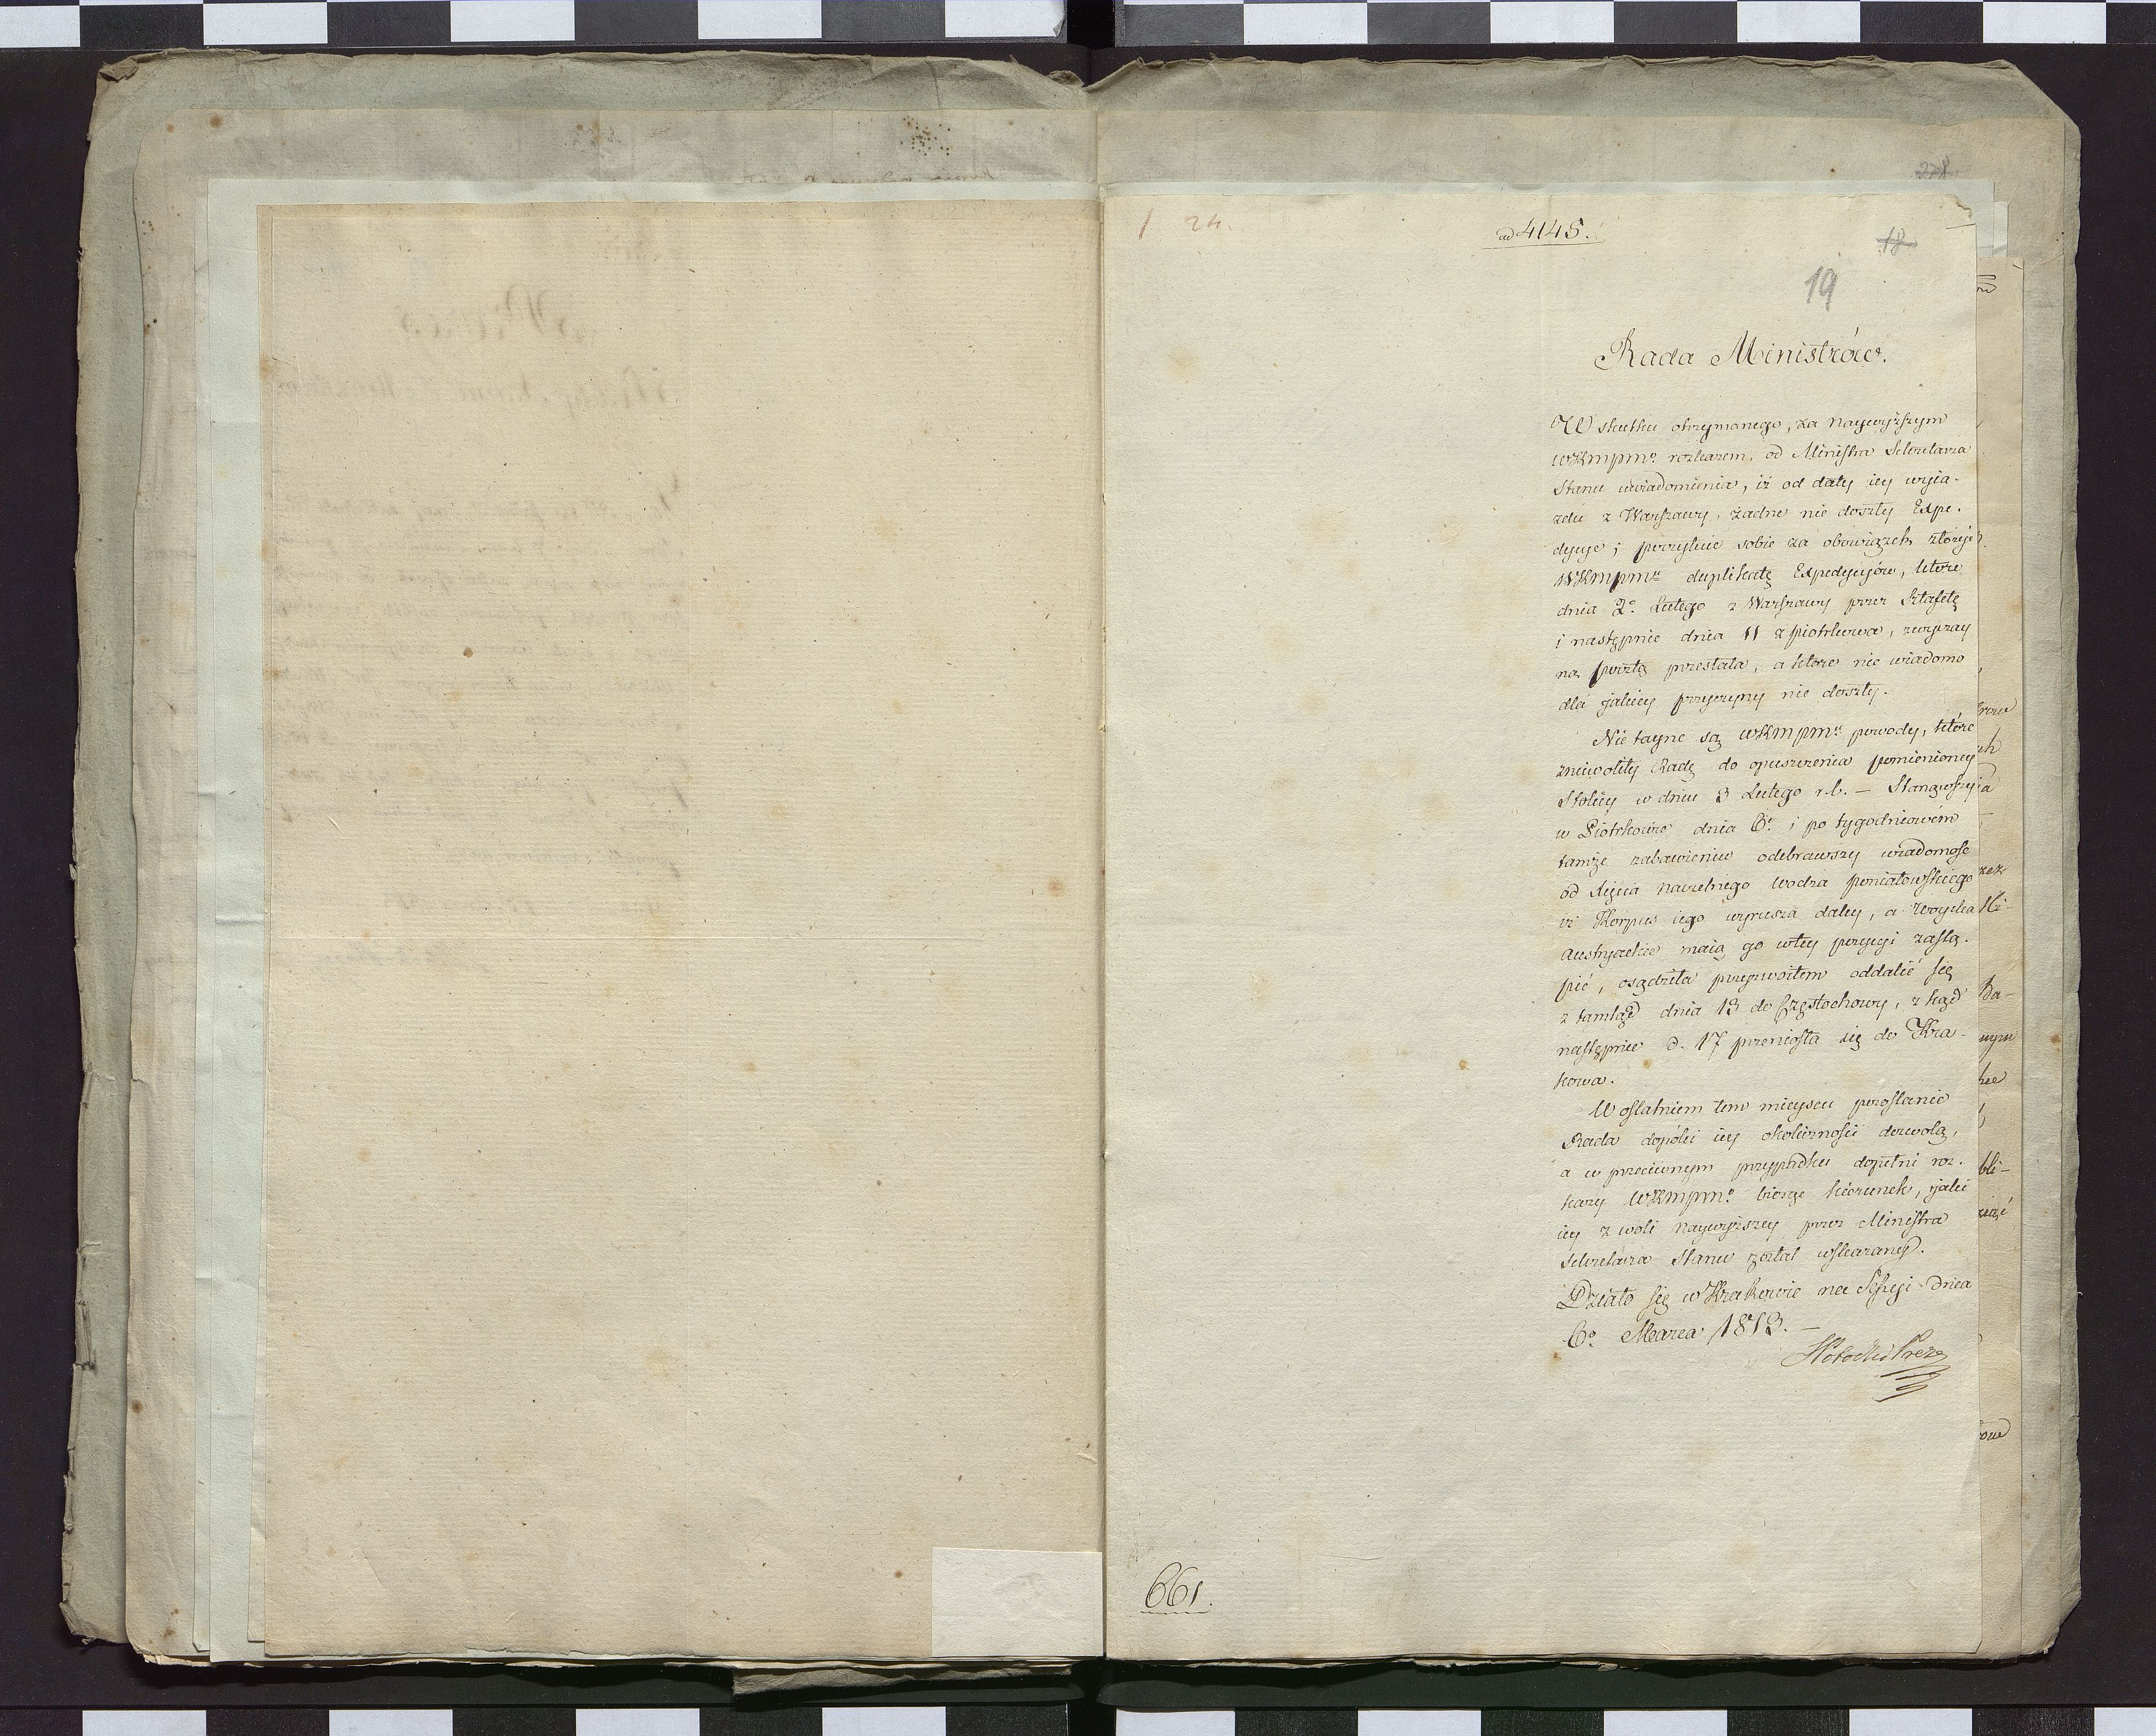 1 24.
ad 4145.
278
18
19
Rada Ministrów.
W skutku otrzymanego, za naywyższym
WKmpmo. rozkazem, od Ministra Sekretarza
Stanu uwiadomienia, iż od daty iey wyia-
zdu z Warszawy, żadne nie doszły Expe-
dycye; poczytuie sobie za obowiązek złożyć
WKmpmz duplikatę Expedycyów, które
dnia 2o. Lutego z Warszawy przez Sztafetę
i następnie dnia 11 z Piotrkowa, zwyczay
ną pocztą przesłała, a które nie wiadomo
dla jakiey przyczyny nie doszły.
Nie tayne są WKmpmu. powody, które
zniewoliły Radę do opuszczenia pomienioney
Stolicy w dniu 3 Lutego r.b. — Stanąwszy
w Piotrkowie dnia 6o. i po tygodniowém
tamże zabawieniu odebrawszy wiadomość
od Xięcia naczelnego wodza Poniatowskiego
iż Korpus iego wyrusza daley, a Woyska
Austryackie maią go w tey pozycyi zastą-
pić, osądziła przyzwoitem oddalić się
z tamtąd dnia 13 do Częstochowy, z kąd
następnie d. 17 przeniosła się do Kra-
kowa.
W ostatniem tem mieyscu pozostanie
Rada dopóki iey okoliczności dozwolą,
a w przeciwnym przypadku dopełni roz-
kazy WKmpmo. biorąc kierunek, jaki
iey z woli naywyższey przez Ministra
Sekretarza Stanu został wskazany.
Działo się w Krakowie na Sessyi dnia
6o. Marca 1813. —
S Potocki Prezes
661.